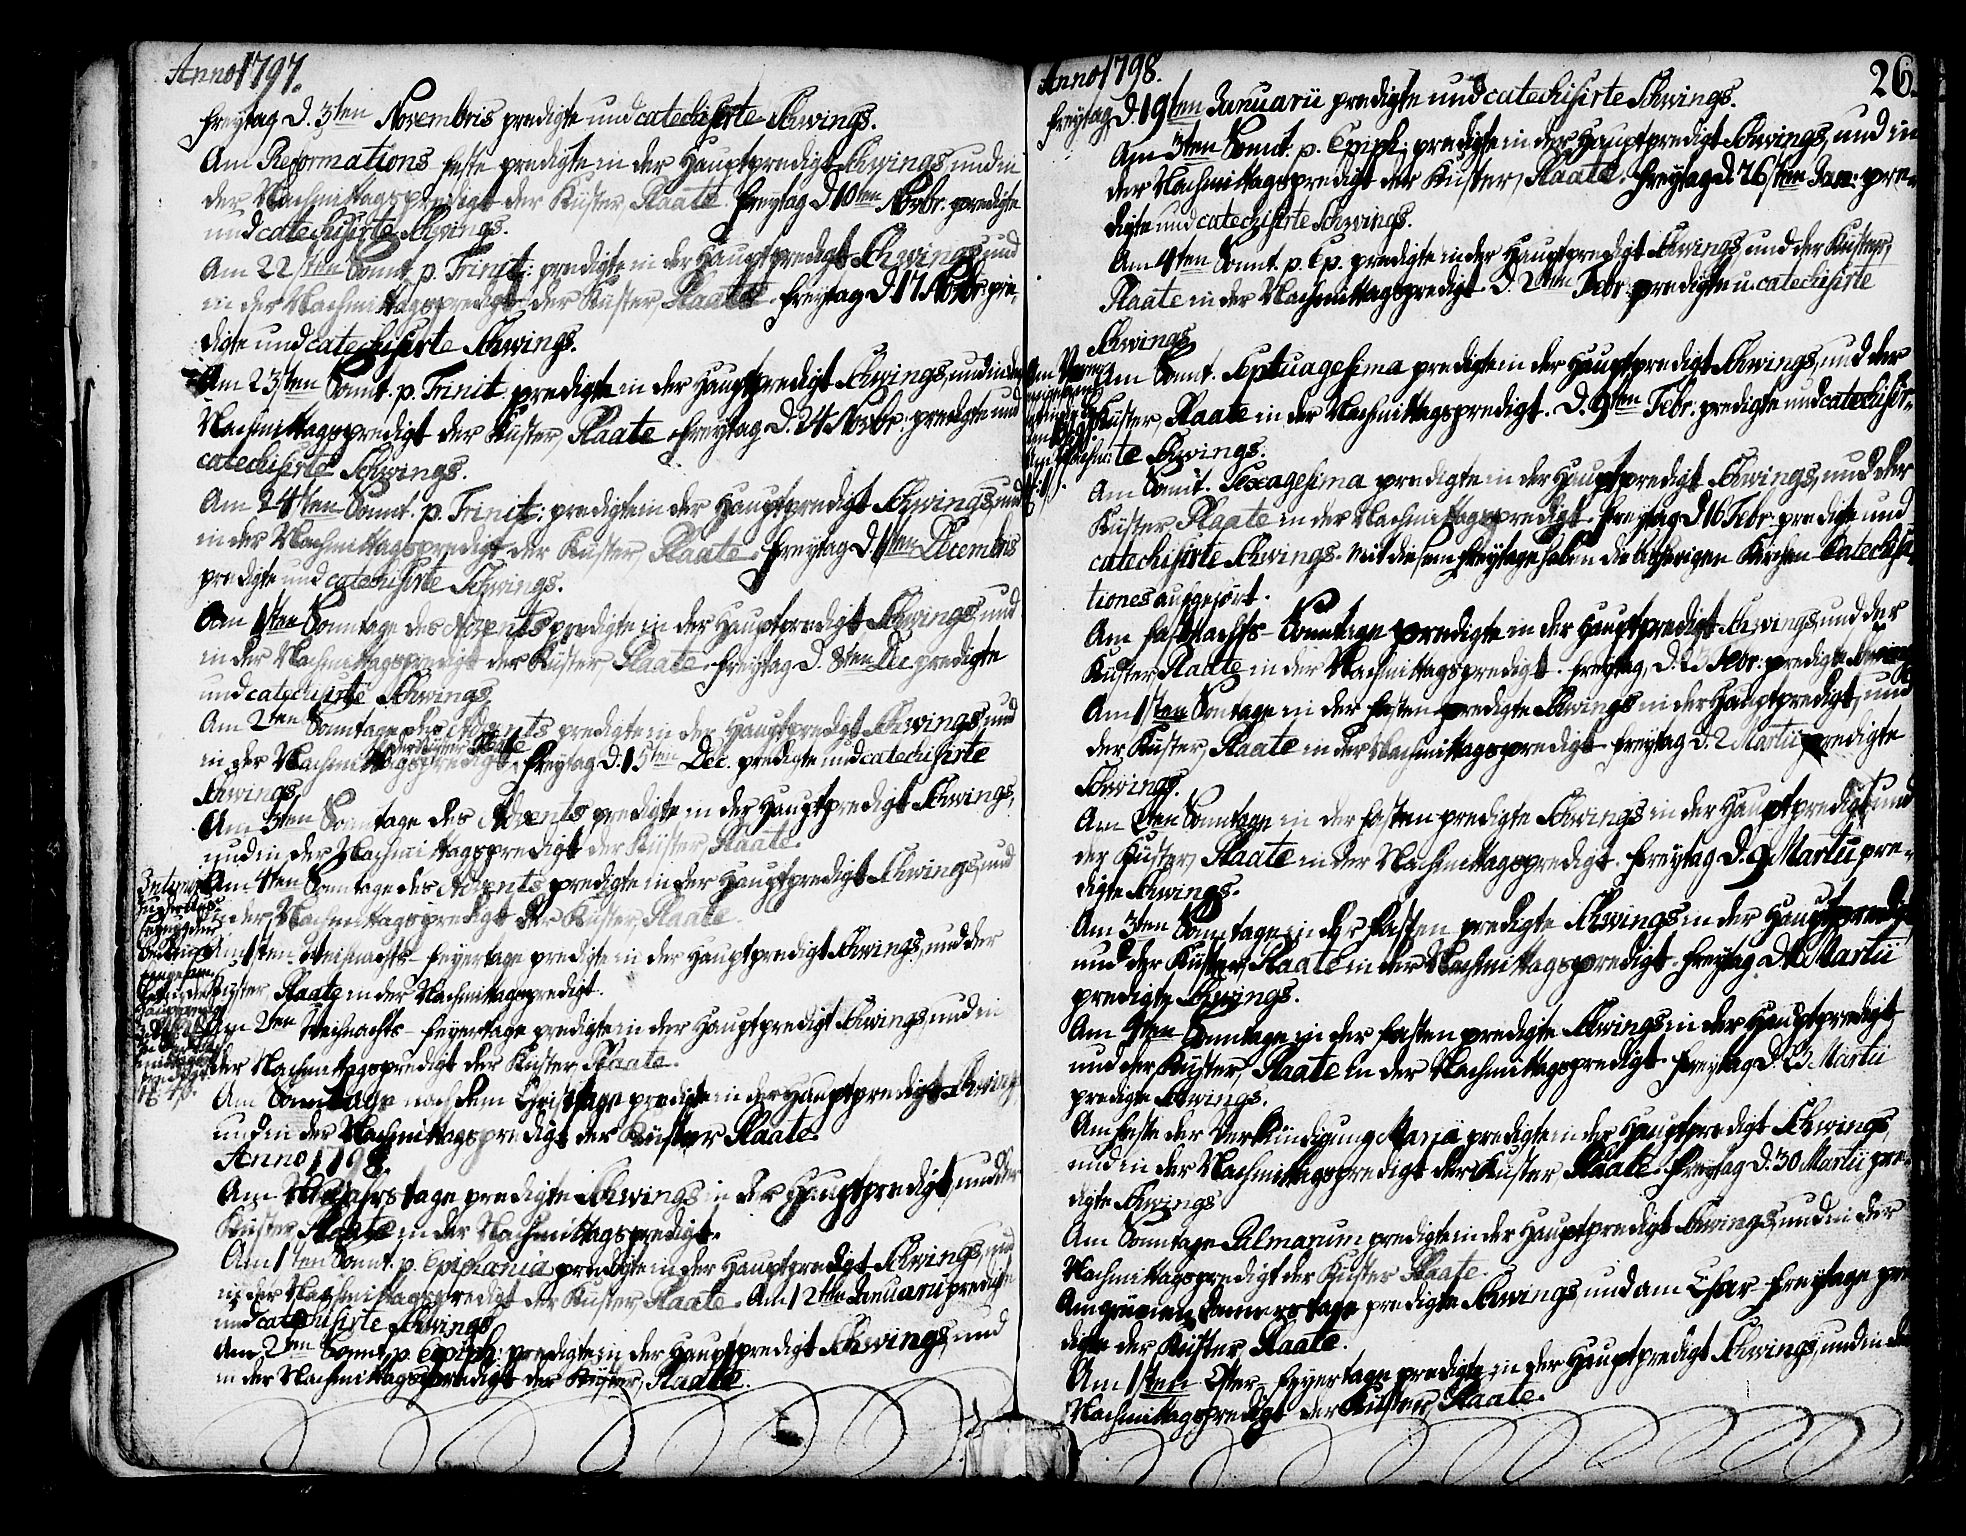 Anno 1797.
Freytag d. 3ten Novembris predigte und catechisirte Schwings.
Am Reformations Feste predigte in der Hauptpredigt Schwings, und in
der Nachmittagspredigt der Küster, Plaate. Freytag d. 10ten Novbr. predigte
und catechisirte Schwings.
Am 22sten Sonnt. p. Trinit: predigte in der Hauptpredigt Schwings, und
in der Nachmittagspredigt der Küster, Plaate. Freytag d. 17 Novbr. pre-
digte und catechisirte Schwings.
Am 23sten Sonnt. p. Trinit. predigte in der Hauptpredigt Schwings, und in der
Nachmittagspredigt der Küster, Plaate. Freytag d. 24 Novbr: predigte und
catechisirte Schwings.
Am 24sten Sonnt. p. Trinit: predigte in der Hauptpredigt Schwings, und
in der Nachmittagspredigt der Küster, Plaate. Freytag d. 1sten Decembris
predigte und catechisirte Schwings.
Am 1sten Sonntage des Advents predigte in der Hauptpredigt Schwings, und
in der Nachmittagspredigt der Küster, Plaate. Freytag d. 8ten Dec. predigte
und catechisirte Schwings.
Am 2ten Sonntage des Advents predigte in der Hauptpredigt Schwings, und
der Küster Plaate
in der Nachmittagspredigt. Freytag d. 15ten Dec. predigte und catechisirte
Schwings.
Am 3ten Sonntage des Advents predigte in der Hauptpredigt Schwings,
und in der Nachmittagspredigt der Küster, Plaate.
Am 4ten Sonntage des Advents predigte in der Hauptpredigt Schwings, und
in der Nachmittagspredigt der Küster, Plaate.
Am 1sten Weihnachts-Feyertage predigte in der Hauptpredigt Schwings, und der
Küster Plaate in der Nachmittagspredigt.
Am 2ten Weihnachts-Feyertage predigte in der Hauptpredigt Schwings, und in
der Nachmittagspredigt der Küster Plaate.
Am Sonntage nach dem Christtage predigte in der Hauptpredigt Schwings
und in der Nachmittagspredigt der Küster Plaate.
Anno 1798.
Am Neujahrstage predigte Schwings in der Hauptpredigt, und der
Küster Plaate in der Nachmittagspredigt.
Am 1sten Sonnt. p. Epiphania predigte in der Hauptpredigt Schwings, und
in der Nachmittagspredigt der Küster, Plaate. Am 12ten Januarii predigte
und catechisirte Schwings.
Am 2ten Sonnt. p. Epiph: predigte in der Hauptpredigt Schwings, und
in der Nachmittagspredigt der Küster, Plaate.
Anno 1798.
26.
Freytag d. 19ten Januarii predigte und catechisirte Schwings.
Am 3ten Sonnt. p. Epiph: predigte in der Hauptpredigt Schwings, und in
der Nachmittagspredigt der Küster, Plaate. Freytag d. 26sten Jan: pre-
digte und catechisirte Schwings.
Am 4ten Sonnt. p. Ep. predigte in der Hauptpredigt Schwings, und der Küster,
Plaate in der Nachmittagspredigt. d. 2ten Febr: predigte u. catechisirte
Schwings.
Am Sonnt. Septuagesima predigte in der Hauptpredigt Schwings, und der
Küster, Plaate in der Nachmittagspredigt. d. 9ten Febr: predigte und catechisir-
te Schwings.
Am Sonnt. Sexagesima predigte in der Hauptpredigt Schwings, und der
Küster Plaate in der Nachmittagspredigt. Freytag d. 16 Febr. predigte und
catechisirte Schwings. Mit diesem Freytage haben die bisherigen Kirchen Catechisa-
tiones aufgehört.
Am Fastnachts-Sonntage predigte in der Hauptpredigt Schwings und der
Küster, Plaate in der Nachmittagspredigt. Freytag, d. 23 Febr: predigte Schwings
Am 1sten Sontage in der Fasten predigte Schwings in der Hauptpredigt, und
der Küster, Plaate in der Nachmittagspredigt. Freytag d. 2 Martii predigte
Schwings.
Am 2ten Sonntage in der Fasten predigte Schwings in der Hauptpredigt und
der Küster, Plaate in der Nachmittagspredigt. Freytag d. 9 Martii pre-
digte Schwings.
Am 3ten Sonntage in der Fasten predigte Schwings in der Hauptpredigt
und der Küster, Plaate in der Nachmittagspredigt. Freytag d. Martii
predigte Schwings.
Am 4ten Sonntage in der Fasten predigte Schwings in der Hauptpredigt
und der Küster, Plaate in der Nachmittagspredigt. Freytag d. 23 Martii
predigte Schwings.
Am Feste der Verkündigung Mariä predigte in der Hauptpredigt Schwings
und in der Nachmittagspredigt der Küster Plaate. Freytag d. 30 Martii pre-
digte Schwings
Am Sonntage Palmarum predigte in der Hauptpredigt Schwings, und in der
Nachmittagspredigt der Küster Plaate.
Am grünen Donnerstage predigte Schwings, und am Char-Freytage pre-
digte der Küster Plaate.
Am 1sten Oster-Feyertage predigte in der Hauptpredigt Schwings, und in der
Nachmittagspredigt der Küster Plaate.